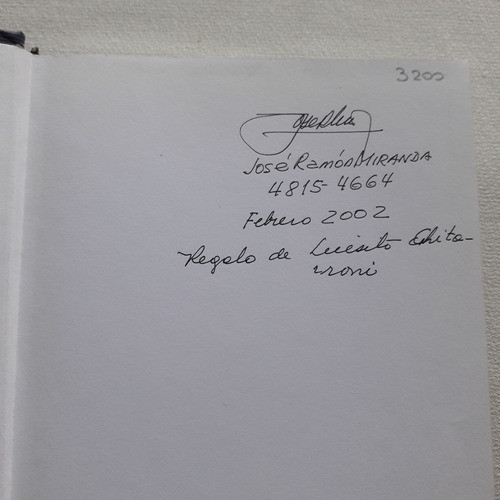 3200
José Ramón MIRANDA
4815-4664
Febrero 2002
Regalo de Luisito Chita-
rroni